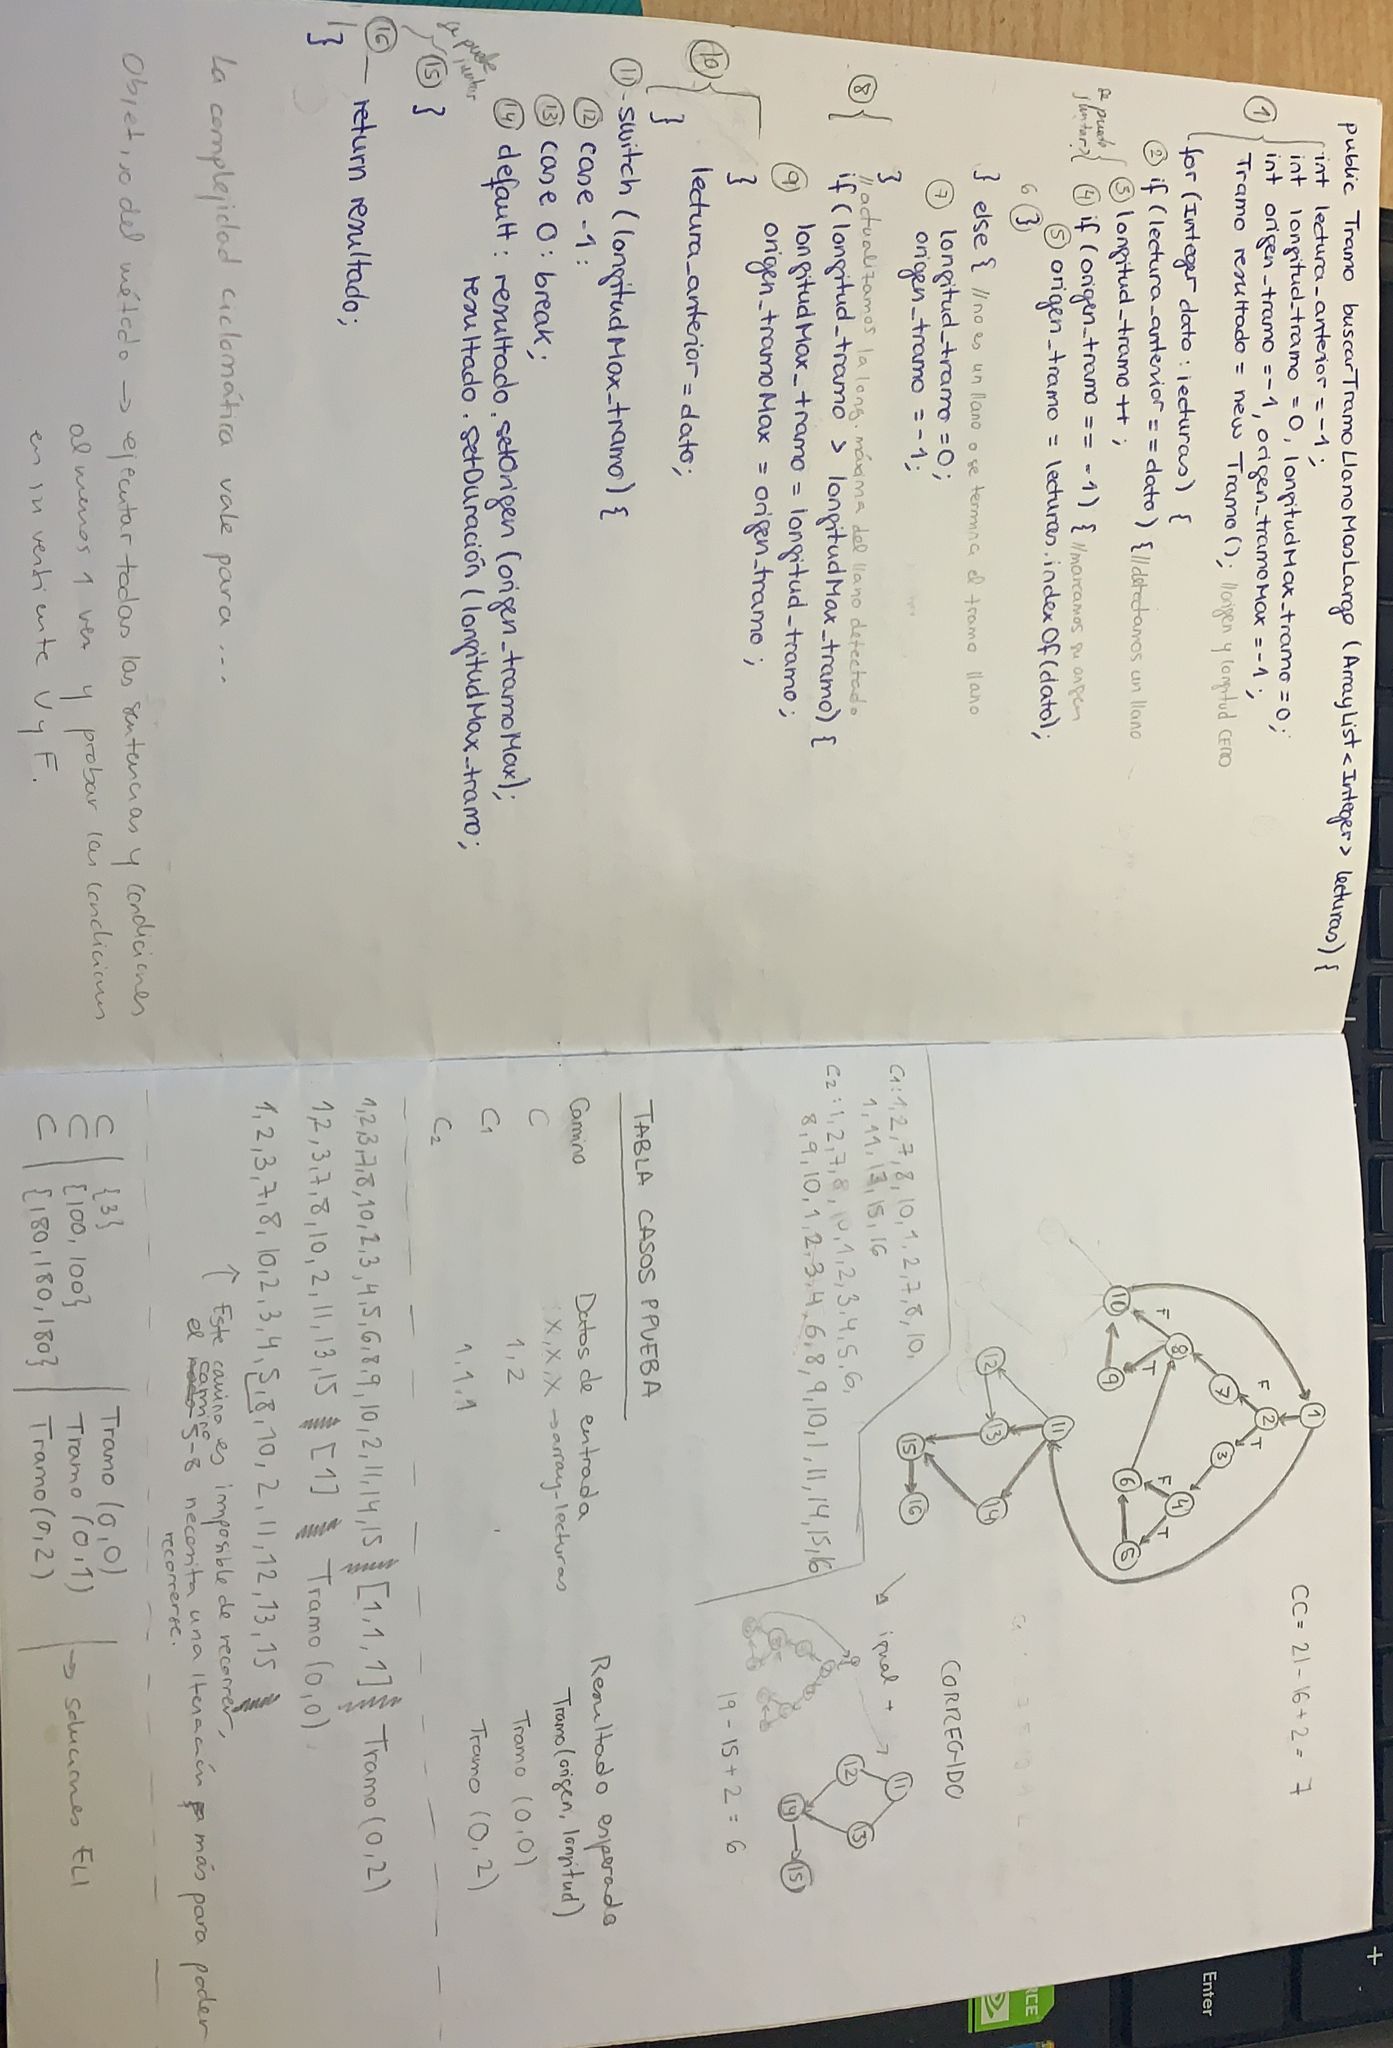 public Tramo buscarTramoLlanoMasLargo (ArrayList<Integer> lecturas) {
① int lectura_anterior = -1;
int longitud_tramo = 0, longitudMax_tramo = 0;
int origen_tramo = -1, origen_tramoMax = -1;
Tramo resultado = new Tramo(); //origen y longitud CERO
for (Integer dato : lecturas) {
② if (lectura_anterior == dato) { //detectamos un llano
③ longitud_tramo ++;
se puede juntar?
④ if (origen_tramo == -1) { //marcamos su origen
⑤ origen_tramo = lecturas.indexOf(dato);
6 }
} else { //no es un llano o se termina el tramo llano
⑦ longitud_tramo = 0;
origen_tramo = -1;
}
//actualizamos la long. máxima del llano detectado
⑧ if (longitud_tramo > longitudMax_tramo) {
⑨ longitudMax_tramo = longitud_tramo;
origen_tramoMax = origen_tramo;
}
⑩ lectura_anterior = dato;
}
⑪ - switch (longitudMax_tramo) {
⑫ case -1 :
⑬ case 0 : break;
⑭ default : resultado.setOrigen (origen_tramoMax);
resultado.setDuración (longitudMax_tramo;
se puede juntar
⑮ }
⑯ — return resultado;
}
La complejidad ciclomática vale para ...
Objetivo del método → ejecutar todas las sentencias y condiciones
al menos 1 vez y probar las condiciones
en su vertiente V y F.
CC = 21 - 16 + 2 = 7
1
2
F
T
7
3
8
4
F
T
F
T
10
9
6
5
11
12
13
14
15
16
C1: 1, 2, 7, 8, 10, 1, 2, 7, 8, 10,
1, 11, 13, 15, 16
C2: 1, 2, 7, 8, 10, 1, 2, 3, 4, 5, 6,
8, 9, 10, 1, 2, 3, 4, 6, 8, 9, 10, 1, 11, 14, 15, 16
CORREGIDO
igual +
11
12
13
14
15
19 - 15 + 2 = 6
TABLA CASOS PRUEBA
Camino Datos de entrada Resultado esperado
C X, X, X → array-lecturas Tramo(origen, longitud)
C1 1, 2 Tramo (0,0)
C2 1, 1, 1 Tramo (0,2)
1, 2, 3, 7, 8, 10, 2, 3, 4, 5, 6, 8, 9, 10, 2, 11, 14, 15 [1, 1, 1] Tramo (0,2)
1, 2, 3, 7, 8, 10, 2, 11, 13, 15 [1] Tramo (0,0)
1, 2, 3, 7, 8, 10, 2, 3, 4, 5, 8, 10, 2, 11, 12, 13, 15
↑ Este camino es imposible de recorrer,
el camino 5-8 necesita una iteración más para poder
recorrerse.
C | {3} | Tramo (0,0)
C | {100, 100} | Tramo (0,1)
C | {180, 180, 180} | Tramo (0,2) → soluciones ELI
Enter
+